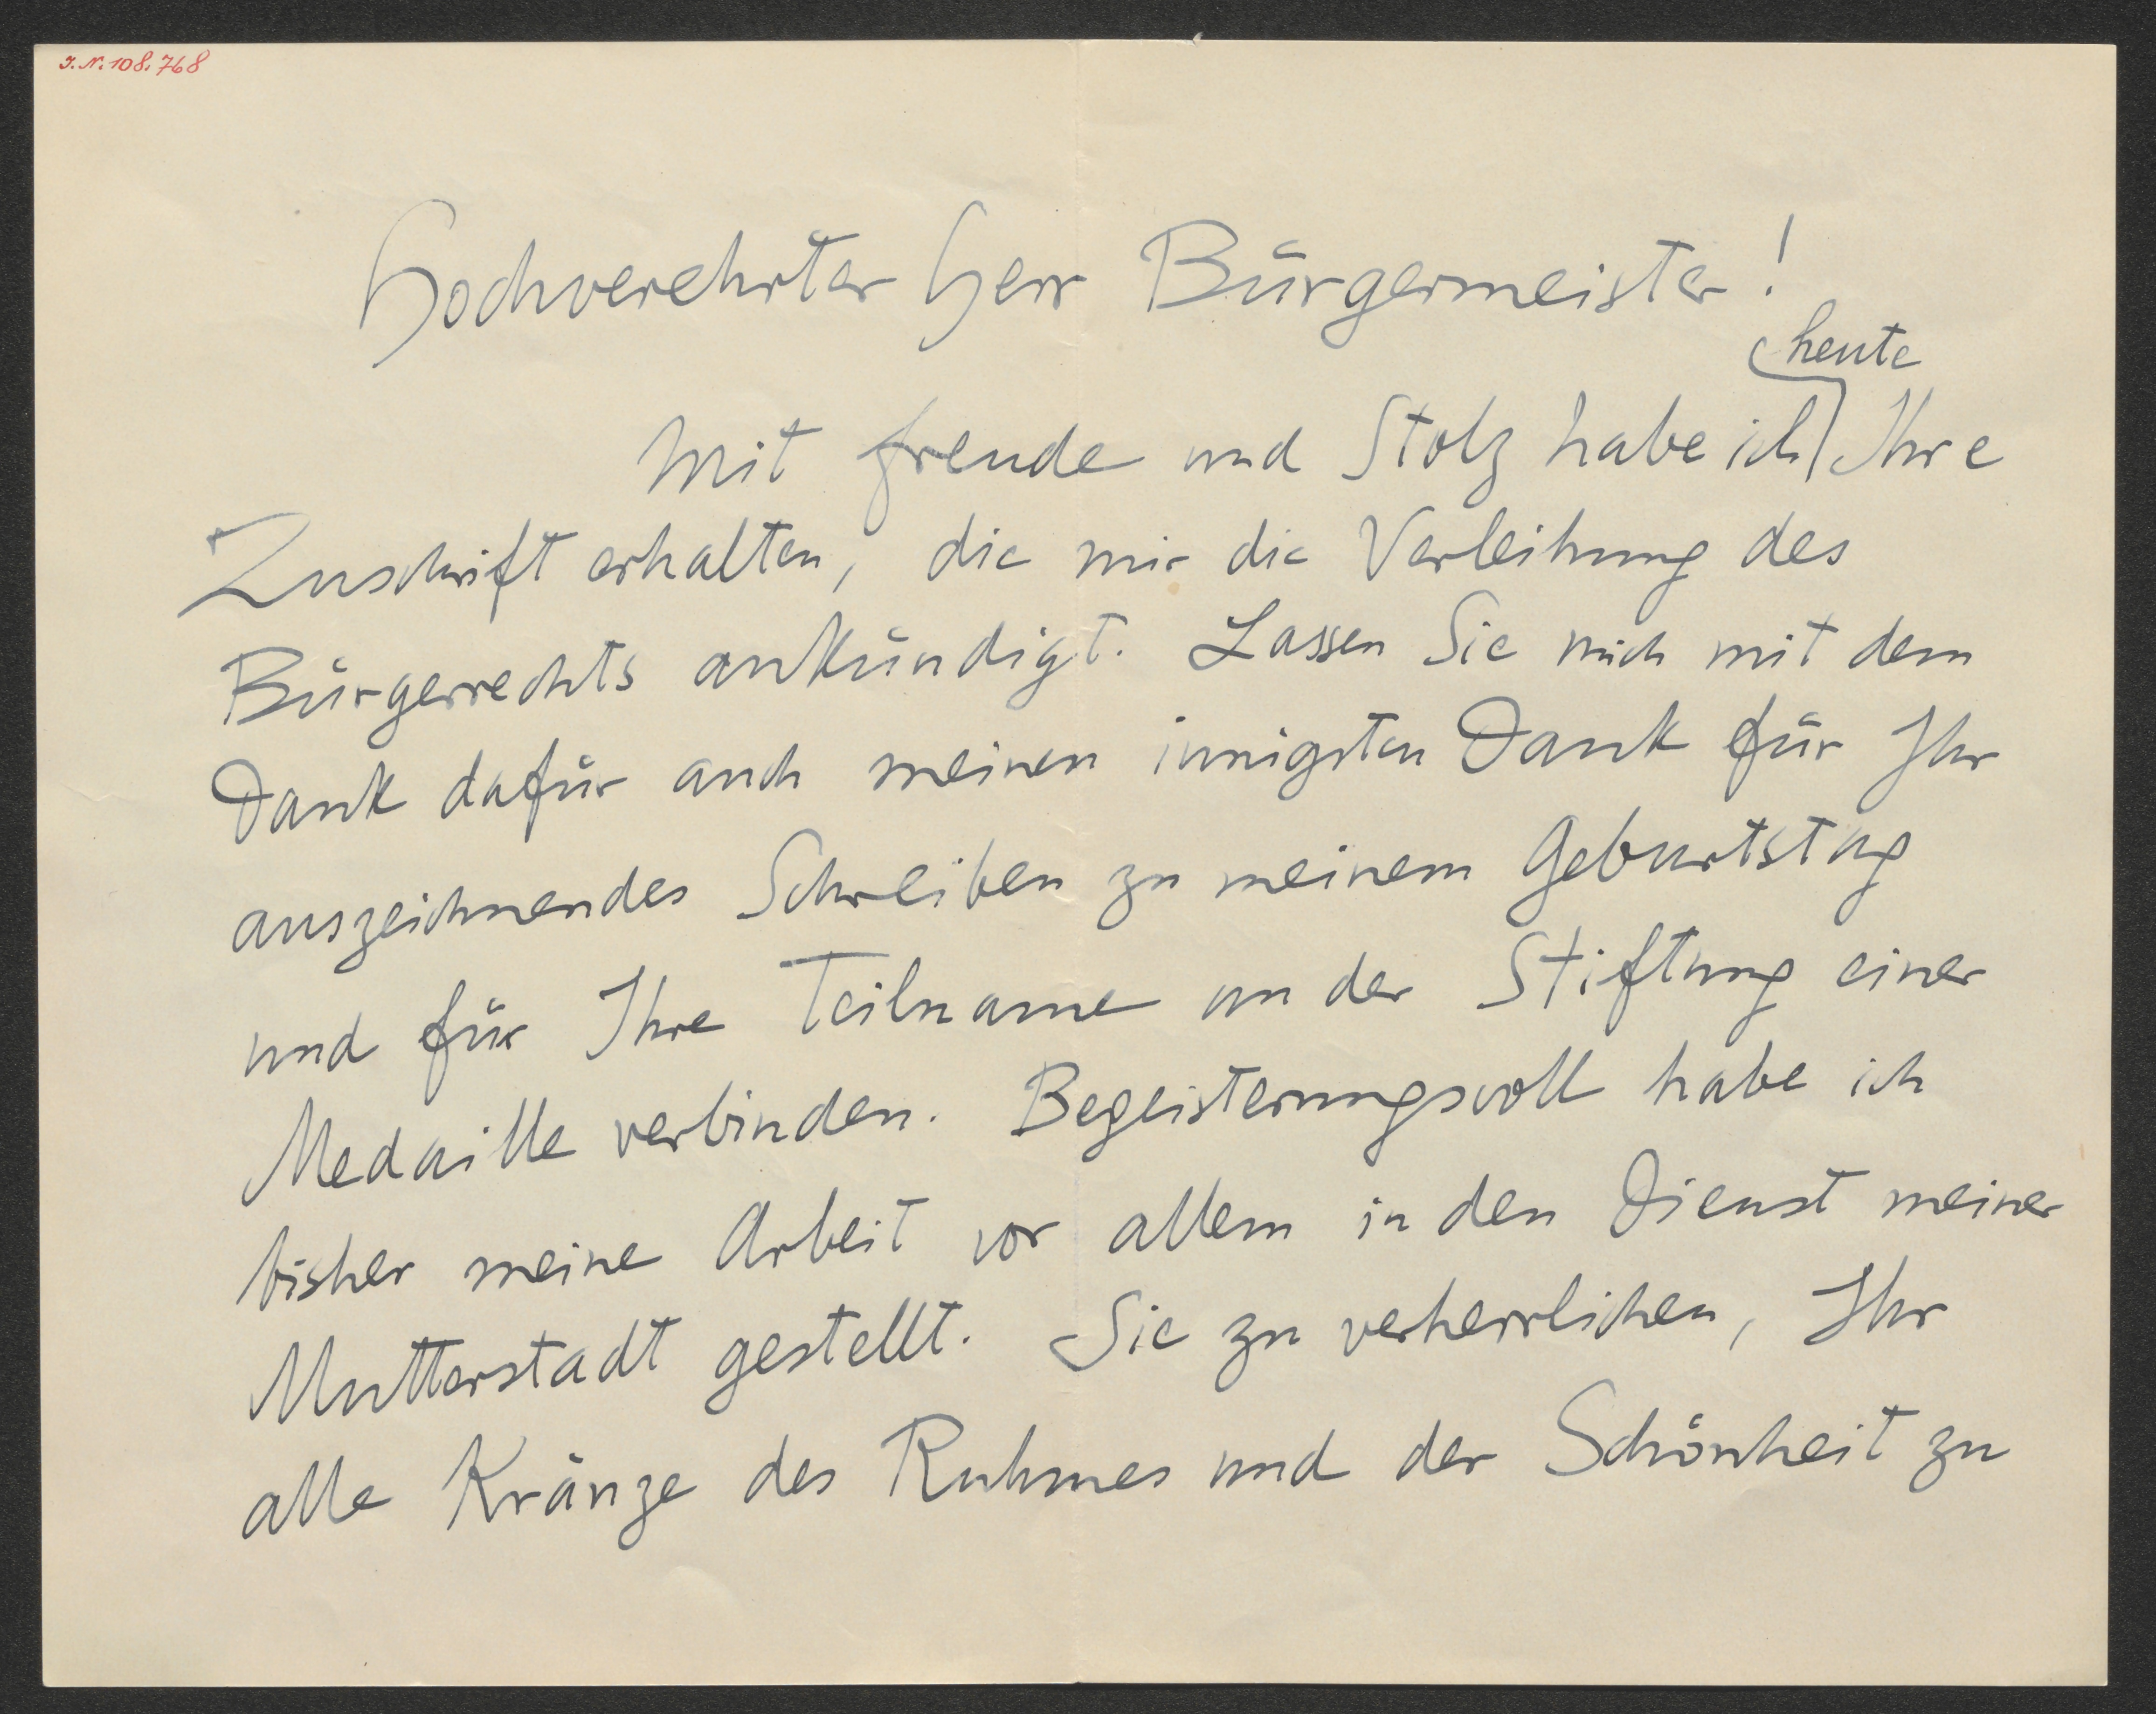 J.N. 108.768
Hochverehrter Herr Bürgermeister!
heute
Mit Freude und Stolz habe ich Ihre
Zuschrift erhalten, die mir die Verleihung des
Bürgerrechts ankündigt. Lassen Sie mich mit dem
Dank dafür auch meinen innigsten Dank für Ihr
auszeichnendes Schreiben zu meinem Geburtstag
und für Ihre Teilname an der Stiftung einer
Medaille verbinden. Begeisterungsvoll habe ich
bisher meine Arbeit vor allem in den Dienst meiner
Mutterstadt gestellt. Sie zu verherrlichen, Ihr
alle Kränze des Ruhmes und der Schönheit zu